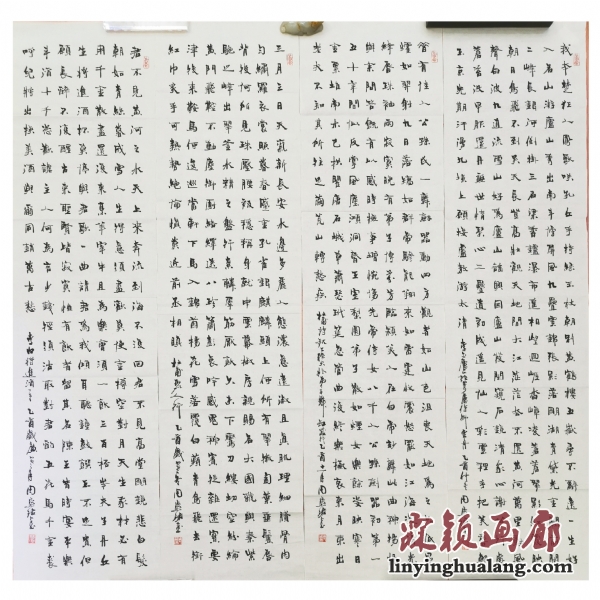 我本楚狂人鳳歌笑孔丘手持綠玉杖朝別黃鶴樓五嶽尋仙不辭遠一生好
入名山遊廬山秀出南斗傍屏風九疊雲錦張影落明湖青黛光金闕前開
二峰長銀河倒掛三石梁香爐瀑布遙相望迴崖沓嶂凌蒼蒼翠影紅霞映
朝日鳥飛不到吳天長登高壯觀天地間大江茫茫去不還黃雲萬里動風
色白波九道流雪山好為廬山謠興因廬山發閒窺石鏡清我心謝公行處
蒼苔沒早服還丹無世情琴心三疊道初成遙見仙人彩雲裡手把芙蓉朝
玉京先期汗漫九垓上願接盧敖遊太清
昔有佳人公孫氏一舞劍器動四方觀者如山色沮喪天地為之久低昂
㸌如羿射九日落矯如群帝驂龍翔來如雷霆收震怒罷如江海凝清光
絳唇珠袖兩寂寞晚有弟子傳芬芳臨潁美人在白帝妙舞此曲神揚揚
與余問答既有以感時撫事增惋傷先帝侍女八千人公孫劍器初第一
五十年間似反掌風塵澒洞昏王室梨園弟子散如煙女樂餘姿映寒日金
粟堆南木已拱瞿唐石城草蕭瑟玳筵急管曲復終樂極哀來月東出
老夫不知其所往足繭荒山轉愁疾
三月三日天氣新長安水邊多麗人態濃意遠淑且真肌理細膩骨肉
勻繡羅衣裳照暮春蹙金孔雀銀麒麟頭上何所有翠微㔩葉垂鬢唇
背後何所見珠壓腰衱穩稱身就中雲幕椒房親賜名大國虢與秦紫
駝之峰出翠釜水精之盤行素鱗犀箸厭飫久未下鸞刀縷切空紛綸
黃門飛鞚不動塵御廚絡繹送八珍簫鼓哀吟感鬼神賓從雜遝實要
津後來鞍馬何逡巡當軒下馬入錦茵楊花雪落覆白蘋青鳥飛去銜
紅巾炙手可熱勢絕倫慎莫近前丞相嗔 杜甫麗人行
君不見黃河之水天上來奔流到海不復回君不見高堂明鏡悲白髮
朝如青絲暮成雪人生得意須盡歡莫使金樽空對月天生我材必有
用千金散盡還復來烹羊宰牛且為樂會須一飲三百杯岑夫子丹丘
生將進酒杯莫停與君歌一曲請君為我傾耳聽鐘鼓饌玉不足貴但
願長醉不復醒古來聖賢皆寂寞惟有飲者留其名陳王昔時宴平樂
斗酒十千恣歡謔主人何為言少錢徑須沽取對君酌五花馬千金裘
呼兒將出換美酒與爾同銷萬古愁 李白將進酒
霖颖画廊
linyinghualang.com